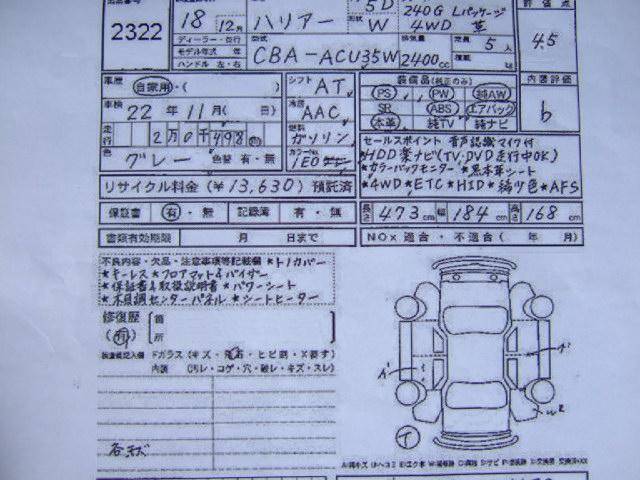 出品番号
2322
18 12月
ハリアー
5D
W
240G Lパッケージ
4WD 革
評価点
4.5
ディーラー・並行
モデル年式 年
ハンドル 左・右
型式 CBA-ACU35W
排気量 2400cc
定員 5人
車歴 自家用・( )
シフト AT
装備品(純正のみ)
内装評価
b
PS PW 純AW
SR ABS エアバッグ
本革 純TV 純ナビ
車検 22年 11月( 日)
冷房 AAC
走行 2万0千498
燃料 ガソリン
色 グレー 色替 有・無
カラーNo. 1E0
セールスポイント 音声認識マイク付
HDD楽ナビ(TV,DVD走行中OK)
★カラーバックモニター ★黒本革シート
★4WD★ETC★HID★綺ツ色★AFS
リサイクル料金 (¥13,630) 預託済
保証書 有・無 記録簿 有・無
長さ 473cm 幅 184cm 高さ 168cm
書類有効期限 月 日まで
NOx 適合・不適合( 年 月)
不良内容・欠品・注意事項等記載欄 ★トノカバー
★キーレス★フロアマット&バイザー
★保証書&取扱説明書★パワーシート
★木目調センターパネル★シートヒーター
修復歴 箇
(有) 所
検査員記入欄 Fガラス(キズ・飛石・ヒビ割・X要す)
内装 (汚レ・コゲ・穴・破レ・キズ・スレ)
各キズ
イ